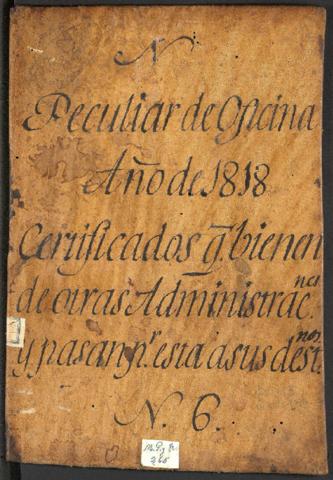 N
Peculiar de Oficina
Año de 1818
Certificados q̃. bienen
de otras Administrac.nes
y pasan p.r esta a sus dest.nos
N. 6.